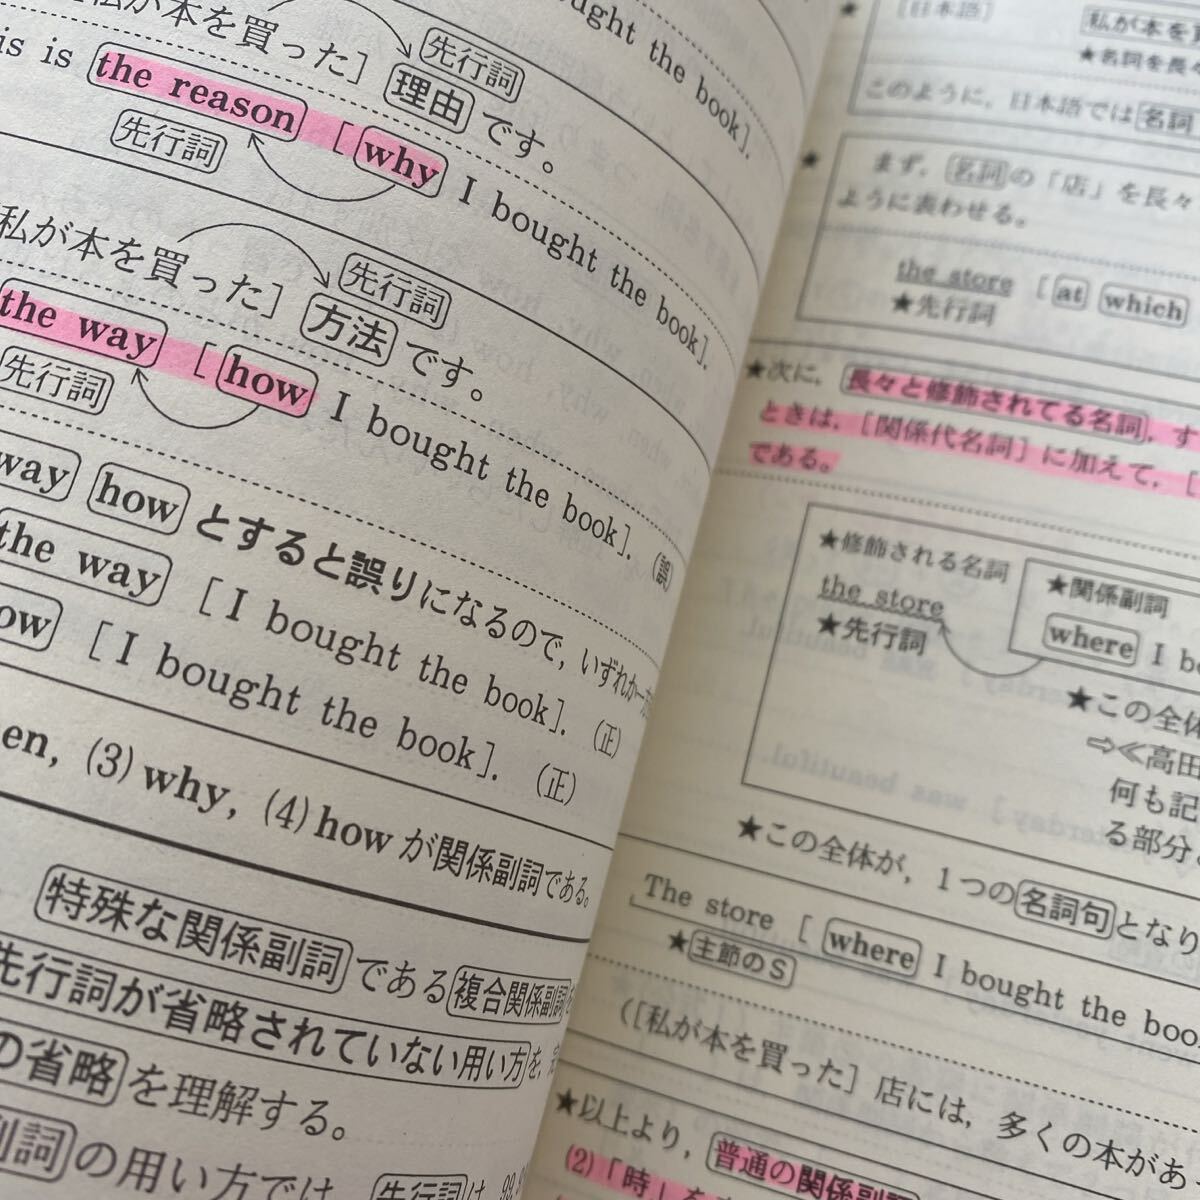 bought the book].
私が本を買った] 理由 です。
先行詞
is is the reason [why I bought the book].
先行詞
私が本を買った] 方法 です。
先行詞
the way [how I bought the book]. (誤)
先行詞
way how とすると誤りになるので, いずれか一
the way [I bought the book]. (正)
ow [I bought the book]. (正)
en, (3) why, (4) how が関係副詞である。
特殊な関係副詞 である 複合関係副詞
先行詞が省略されていない用い方 を,
の省略 を理解する。
副詞 の用い方では, 先行詞 は, 99.9
[日本語] 私が本を買
★名詞を長々
このように, 日本語では 名詞
★ まず, 名詞 の「店」を長々
ように表わせる。
the store [at which
★先行詞
★次に, 長々と修飾されてる名詞, す
ときは, [関係代名詞] に加えて, [
である。
★修飾される名詞
the store
★先行詞
★関係副詞
where I b
★この全体
⇨≪高田
何も記
る部分
★この全体が, 1つの 名詞句 となり
The store [where I bought the boo
★主節のS
([私が本を買った] 店には, 多くの本があ
★以上より, 普通の関係副詞
(2)「時」を